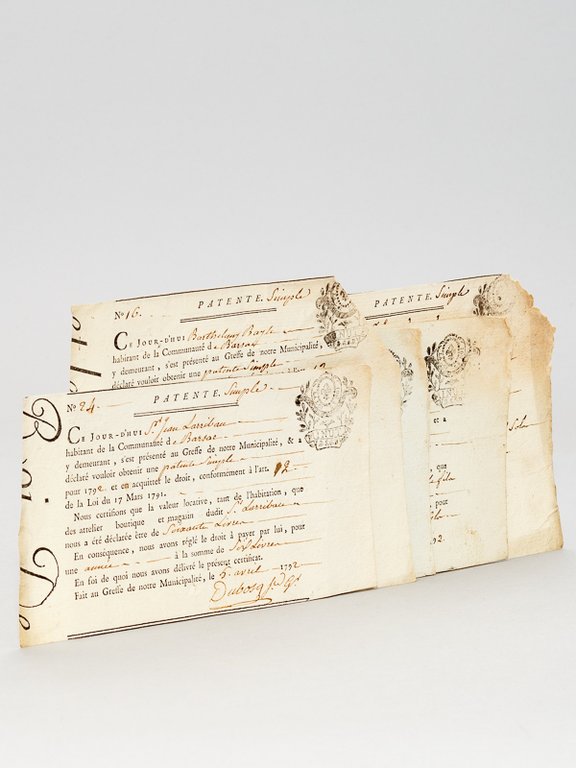 No 16.
PATENTE. Simple
CE JOUR-D'HUI Barthelemy Bayle
habitant de la Communauté de Barsac
y demeurant, s'est présenté au Greffe de notre Municipalité,
déclaré vouloir obtenir une patente Simple
PATENTE. Simple
No 24.
PATENTE. Simple
CE JOUR-D'HUI Sr Jean Larribau
habitant de la Communauté de Barsac
y demeurant, s'est présenté au Greffe de notre Municipalité, & a
déclaré vouloir obtenir une patente Simple
pour 1792 et en acquitter le droit, conformément à l'art. 12
de la Loi du 17 Mars 1791.
Nous certifions que la valeur locative, tant de l'habitation, que
des attelier boutique et magasin dudit Sr Larribau
nous a été déclarée être de Soixante Livres
En conséquence, nous avons réglé le droit à payer par lui, pour
une année à la somme de Six Livres
En foi de quoi nous avons délivré le présent certificat.
Fait au Greffe de notre Municipalité, le 5 avril 1792
Dubosq
et a
que
pour
92.